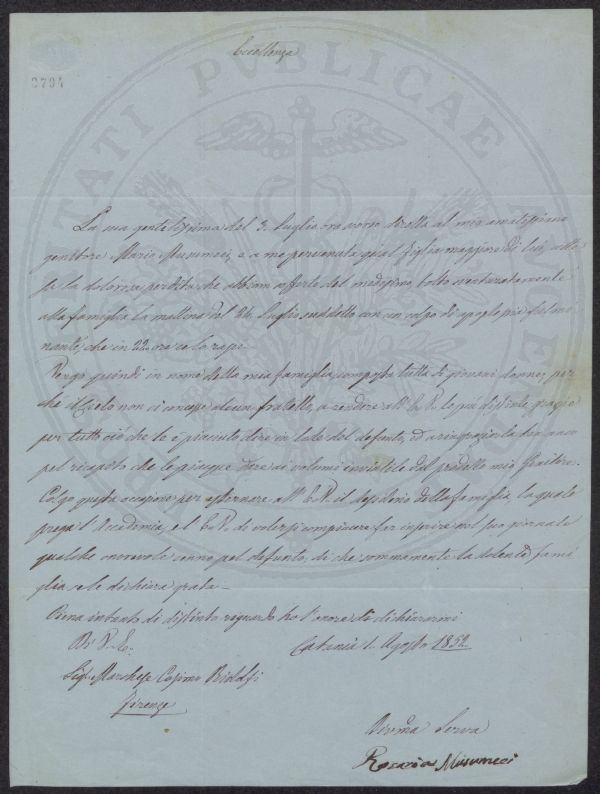 Eccellenza
2704
La sua gentilissima del 3. Luglio ora scorso diretta al mio amatissimo
genitore Mario Musumeci, e a me pervenuta qual figlia maggiore di lui, atte
sa la dolorosa perdita che abbiam sofferta del medesimo, tolto sventuratamente
alla famiglia la mattina del 26. Luglio suddetto con un colpo di apoplessia fulmi
nante, che in 22. ore ce lo rapì.
Porgo quindi in nome della mia famiglia, composta tutta di giovani donne, per
che il Cielo non ci concesse alcun fratello, a rendere all' E. V. le più distinte grazie
per tutto ciò che le è piaciuto dire in lode del defunto, ed a ringraziarla
pel ricapito che le piacque dare ai volumi inviatile dal predetto mio Genitore.
Colgo questa occasione per esternare all' E. V. il desiderio della famiglia, la quale
prega l'Accademia, e l' E. V. di volersi compiacere far inserire nel suo giornale
qualche onorevole cenno pel defunto, di che sommamente la dolente fami
glia se le dichiara grata.
Piena intanto di distinto riguardo ho l'onore di dichiararmi
Di V. E.
Catania 1. Agosto 1852.
Sig. Marchese Cosimo Ridolfi
Firenze
Serva
Rosaria Musumeci
PUBLICAE